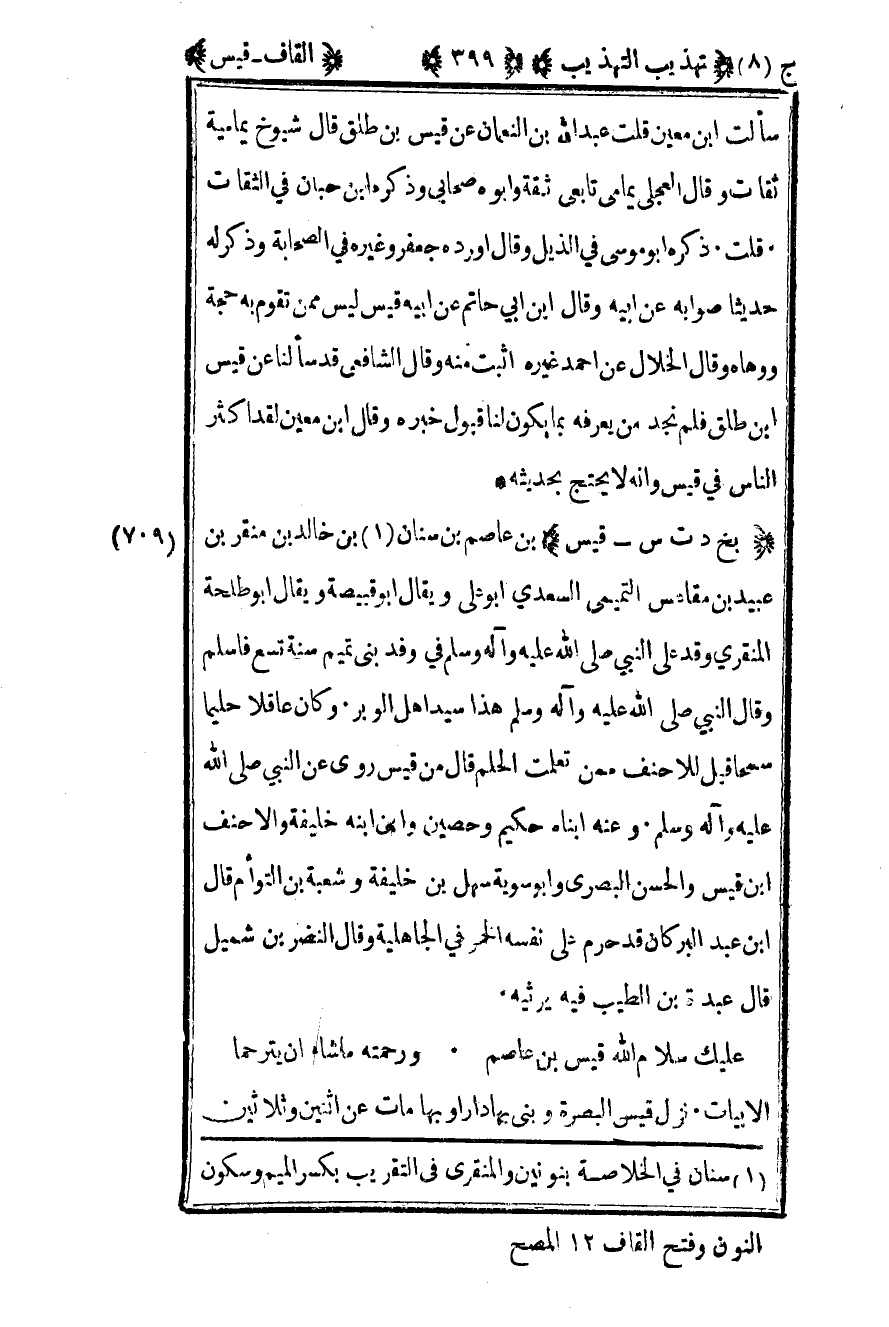 ج (٨) ﴿ تهذيب التهذيب ﴾ ﴿ ٣٩٩ ﴾ ﴿ القاف - قيس ﴾
سألت ابن معين قلت عبدالله بن النعمان عن قيس بن طلق قال شيوخ يمامية
ثقات وقال العجلى يمامى تابعى ثقة وابوه صحابى وذكره ابن حبان في الثقات
٠ قلت ٠ ذكره ابو موسى في الذيل وقال اورده جعفر وغيره في الصحابة وذكر له
حديثا صوابه عن ابيه وقال ابن ابي حاتم عن ابيه قيس ليس ممن تقوم به حجة
ووهاه وقال الخلال عن احمد غيره اثبت منه وقال الشافعى قد سألنا عن قيس
ابن طلق فلم نجد من يعرفه بما يكون لنا قبول خبره وقال ابن معين لقد اكثر
الناس في قيس وانه لا يحتج بحديثه *
﴿ بخ د ت س - قيس ﴾ بن عاصم بن سنان (١) بن خالد بن منقر بن (٧٠٩)
عبيد بن مقاعس التميمى السعدي ابو على ويقال ابو قبيصة ويقال ابو طلحة
المنقري وفد على النبي صلى الله عليه وآله وسلم في وفد بنى تميم سنة تسع فاسلم
وقال النبي صلى الله عليه وآله وسلم هذا سيد اهل الوبر ٠ وكان عاقلا حليما
سمحا قيل للاحنف ممن تعلمت الحلم قال من قيس روى عن النبي صلى الله
عليه وآله وسلم ٠ وعنه ابناه حكيم وحصين وابن ابنه خليفة والاحنف
ابن قيس والحسن البصرى وابو سوية سهل بن خليفة وشعبة بن التوأم قال
ابن عبد البر كان قد حرم على نفسه الخمر في الجاهلية وقال النضر بن شميل
قال عبدة بن الطيب فيه يرثيه ٠
عليك سلام الله قيس بن عاصم ٠ ورحمته ماشاء ان يترحما
الابيات ٠ نزل قيس البصرة وبنى بها دارا وبها مات عن اثنين وثلاثين
(١) سنان في الخلاصة بنونين والمنقرى فى التقريب بكسر الميم وسكون
النون وفتح القاف ١٢ المصح